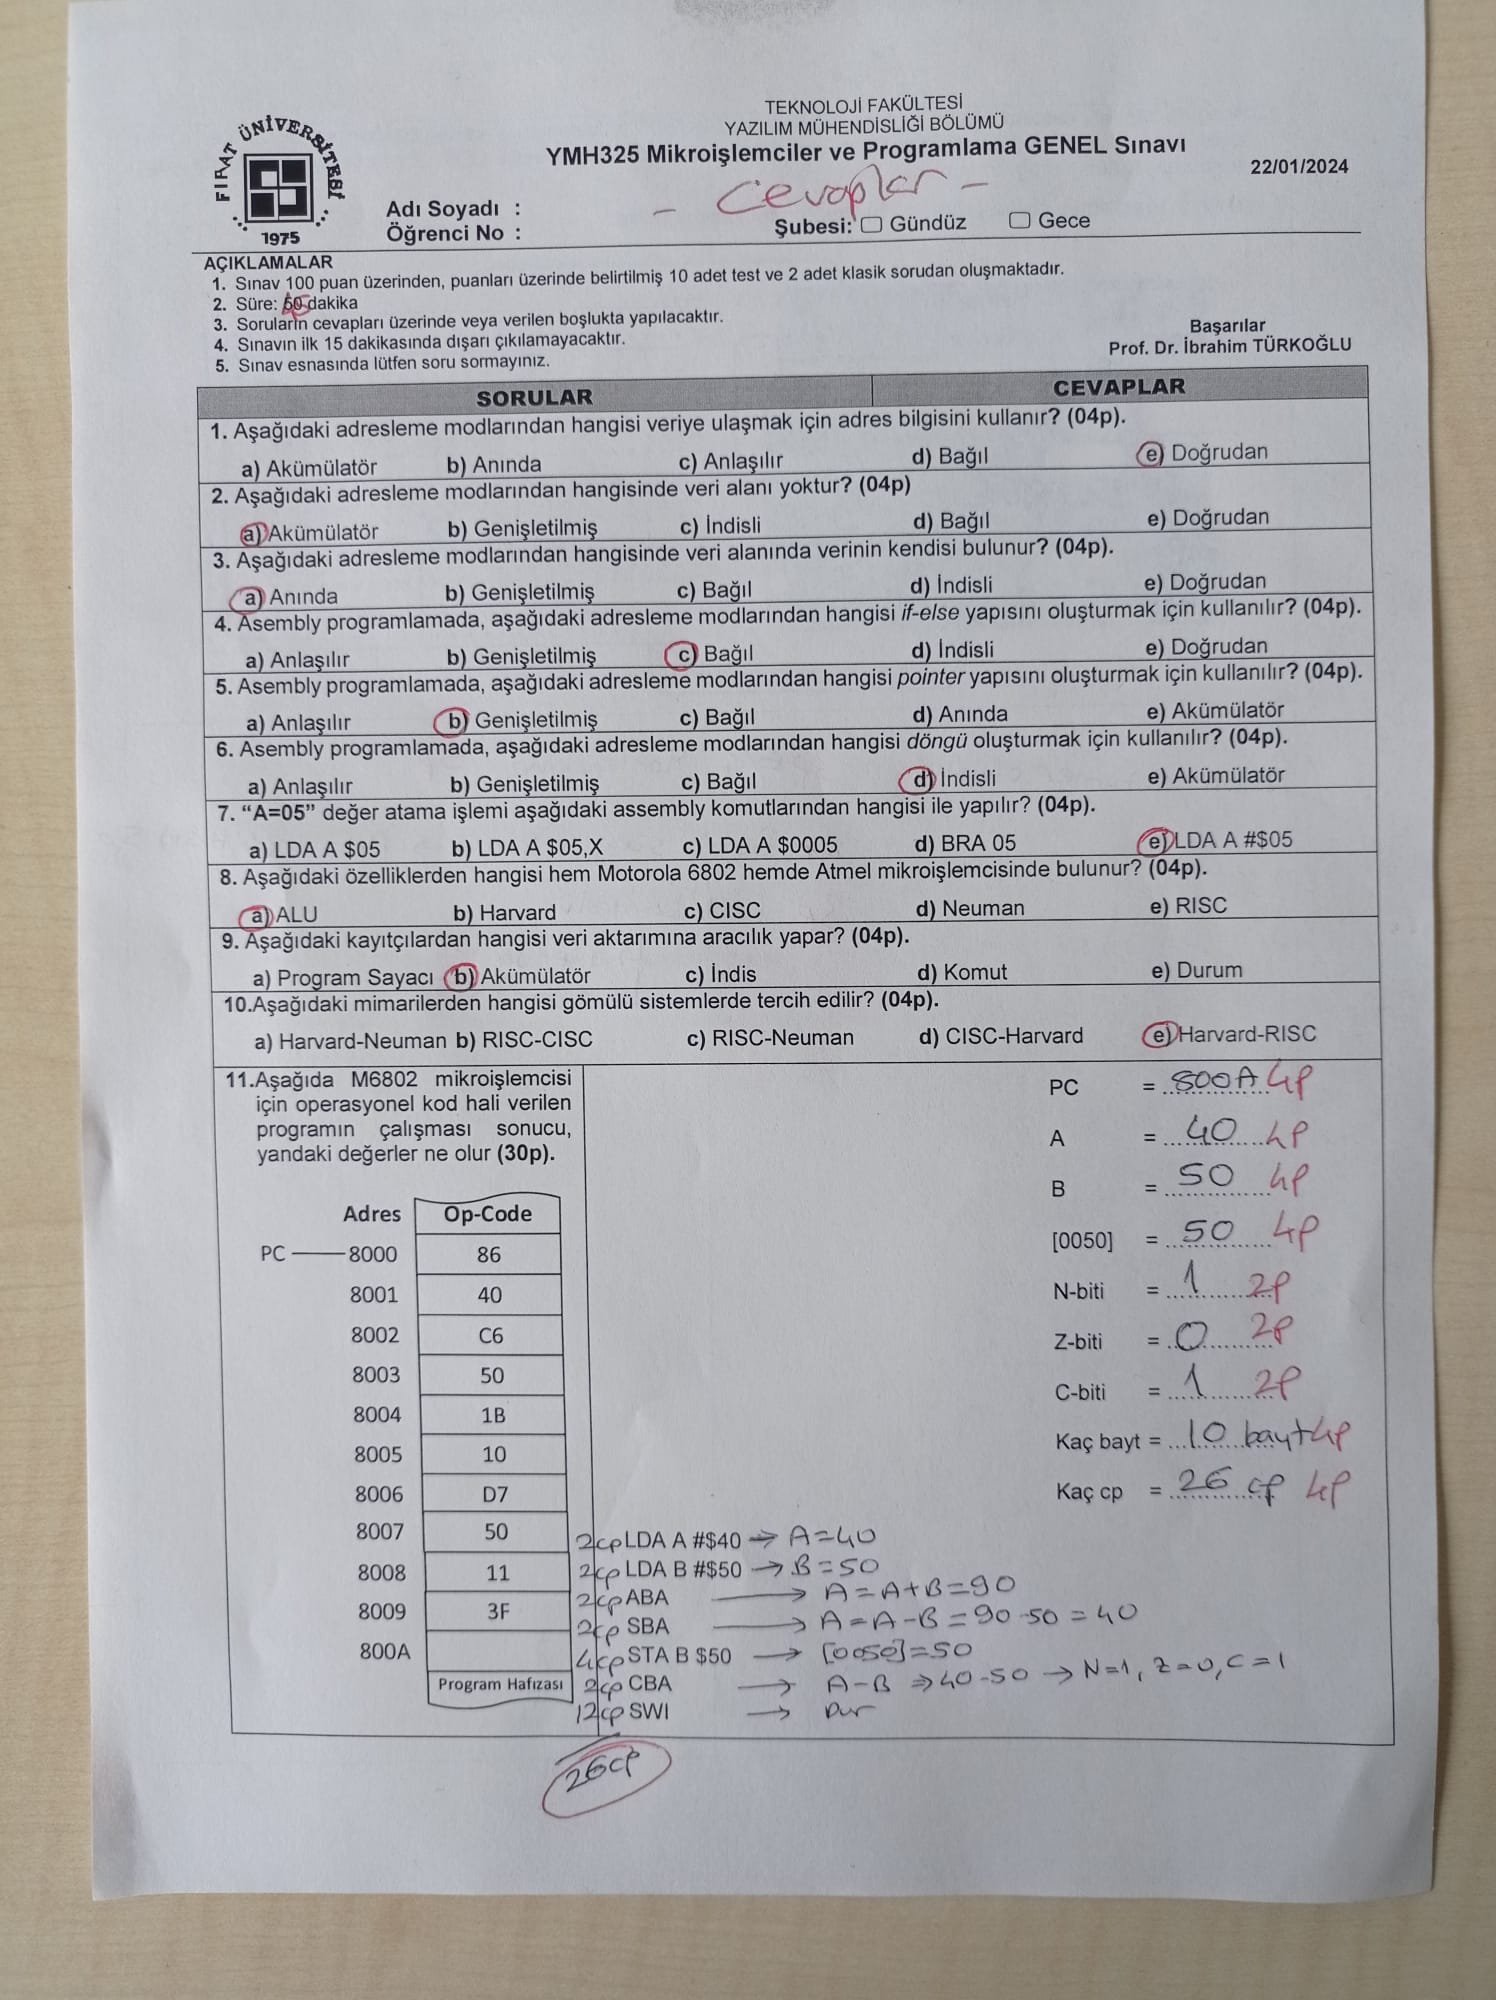 FIRAT ÜNİVERSİTESİ
1975
TEKNOLOJİ FAKÜLTESİ
YAZILIM MÜHENDİSLİĞİ BÖLÜMÜ
YMH325 Mikroişlemciler ve Programlama GENEL Sınavı
22/01/2024
- Cevaplar -
Adı Soyadı :
Öğrenci No :
Şubesi: Gündüz Gece
AÇIKLAMALAR
1. Sınav 100 puan üzerinden, puanları üzerinde belirtilmiş 10 adet test ve 2 adet klasik sorudan oluşmaktadır.
2. Süre: dakika
3. Soruların cevapları üzerinde veya verilen boşlukta yapılacaktır.
4. Sınavın ilk 15 dakikasında dışarı çıkılamayacaktır.
5. Sınav esnasında lütfen soru sormayınız.
Başarılar
Prof. Dr. İbrahim TÜRKOĞLU
SORULAR CEVAPLAR
1. Aşağıdaki adresleme modlarından hangisi veriye ulaşmak için adres bilgisini kullanır? (04p).
a) Akümülatör b) Anında c) Anlaşılır d) Bağıl e) Doğrudan
2. Aşağıdaki adresleme modlarından hangisinde veri alanı yoktur? (04p)
a) Akümülatör b) Genişletilmiş c) İndisli d) Bağıl e) Doğrudan
3. Aşağıdaki adresleme modlarından hangisinde veri alanında verinin kendisi bulunur? (04p).
a) Anında b) Genişletilmiş c) Bağıl d) İndisli e) Doğrudan
4. Asembly programlamada, aşağıdaki adresleme modlarından hangisi if-else yapısını oluşturmak için kullanılır? (04p).
a) Anlaşılır b) Genişletilmiş c) Bağıl d) İndisli e) Doğrudan
5. Asembly programlamada, aşağıdaki adresleme modlarından hangisi pointer yapısını oluşturmak için kullanılır? (04p).
a) Anlaşılır b) Genişletilmiş c) Bağıl d) Anında e) Akümülatör
6. Asembly programlamada, aşağıdaki adresleme modlarından hangisi döngü oluşturmak için kullanılır? (04p).
a) Anlaşılır b) Genişletilmiş c) Bağıl d) İndisli e) Akümülatör
7. “A=05” değer atama işlemi aşağıdaki assembly komutlarından hangisi ile yapılır? (04p).
a) LDA A $05 b) LDA A $05,X c) LDA A $0005 d) BRA 05 e) LDA A #$05
8. Aşağıdaki özelliklerden hangisi hem Motorola 6802 hemde Atmel mikroişlemcisinde bulunur? (04p).
a) ALU b) Harvard c) CISC d) Neuman e) RISC
9. Aşağıdaki kayıtçılardan hangisi veri aktarımına aracılık yapar? (04p).
a) Program Sayacı b) Akümülatör c) İndis d) Komut e) Durum
10.Aşağıdaki mimarilerden hangisi gömülü sistemlerde tercih edilir? (04p).
a) Harvard-Neuman b) RISC-CISC c) RISC-Neuman d) CISC-Harvard e) Harvard-RISC
11.Aşağıda M6802 mikroişlemcisi
için operasyonel kod hali verilen
programın çalışması sonucu,
yandaki değerler ne olur (30p).
Adres Op-Code
PC 8000 86
8001 40
8002 C6
8003 50
8004 1B
8005 10
8006 D7
8007 50
8008 11
8009 3F
800A
Program Hafızası
PC = 800A 4p
A = 40 4p
B = 50 4p
[0050] = 50 4p
N-biti = 1 2p
Z-biti = 0 2p
C-biti = 1 2p
Kaç bayt = 10 bayt 4p
Kaç cp = 26 cp 4p
2cp LDA A #$40 → A=40
2cp LDA B #$50 → B=50
2cp ABA → A=A+B=90
2cp SBA → A=A-B=90-50=40
4cp STA B $50 → [0050]=50
2cp CBA → A-B ⇒ 40-50 → N=1, Z=0, C=1
12cp SWI → Dur
26cp